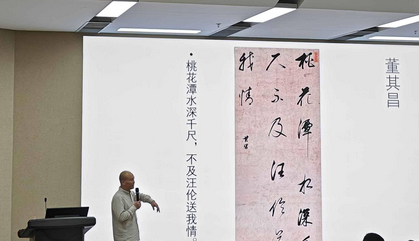 董其昌
桃花潭水深千
尺不及汪倫送
我情
其昌
• 桃花潭水深千尺，不及汪伦送我情。